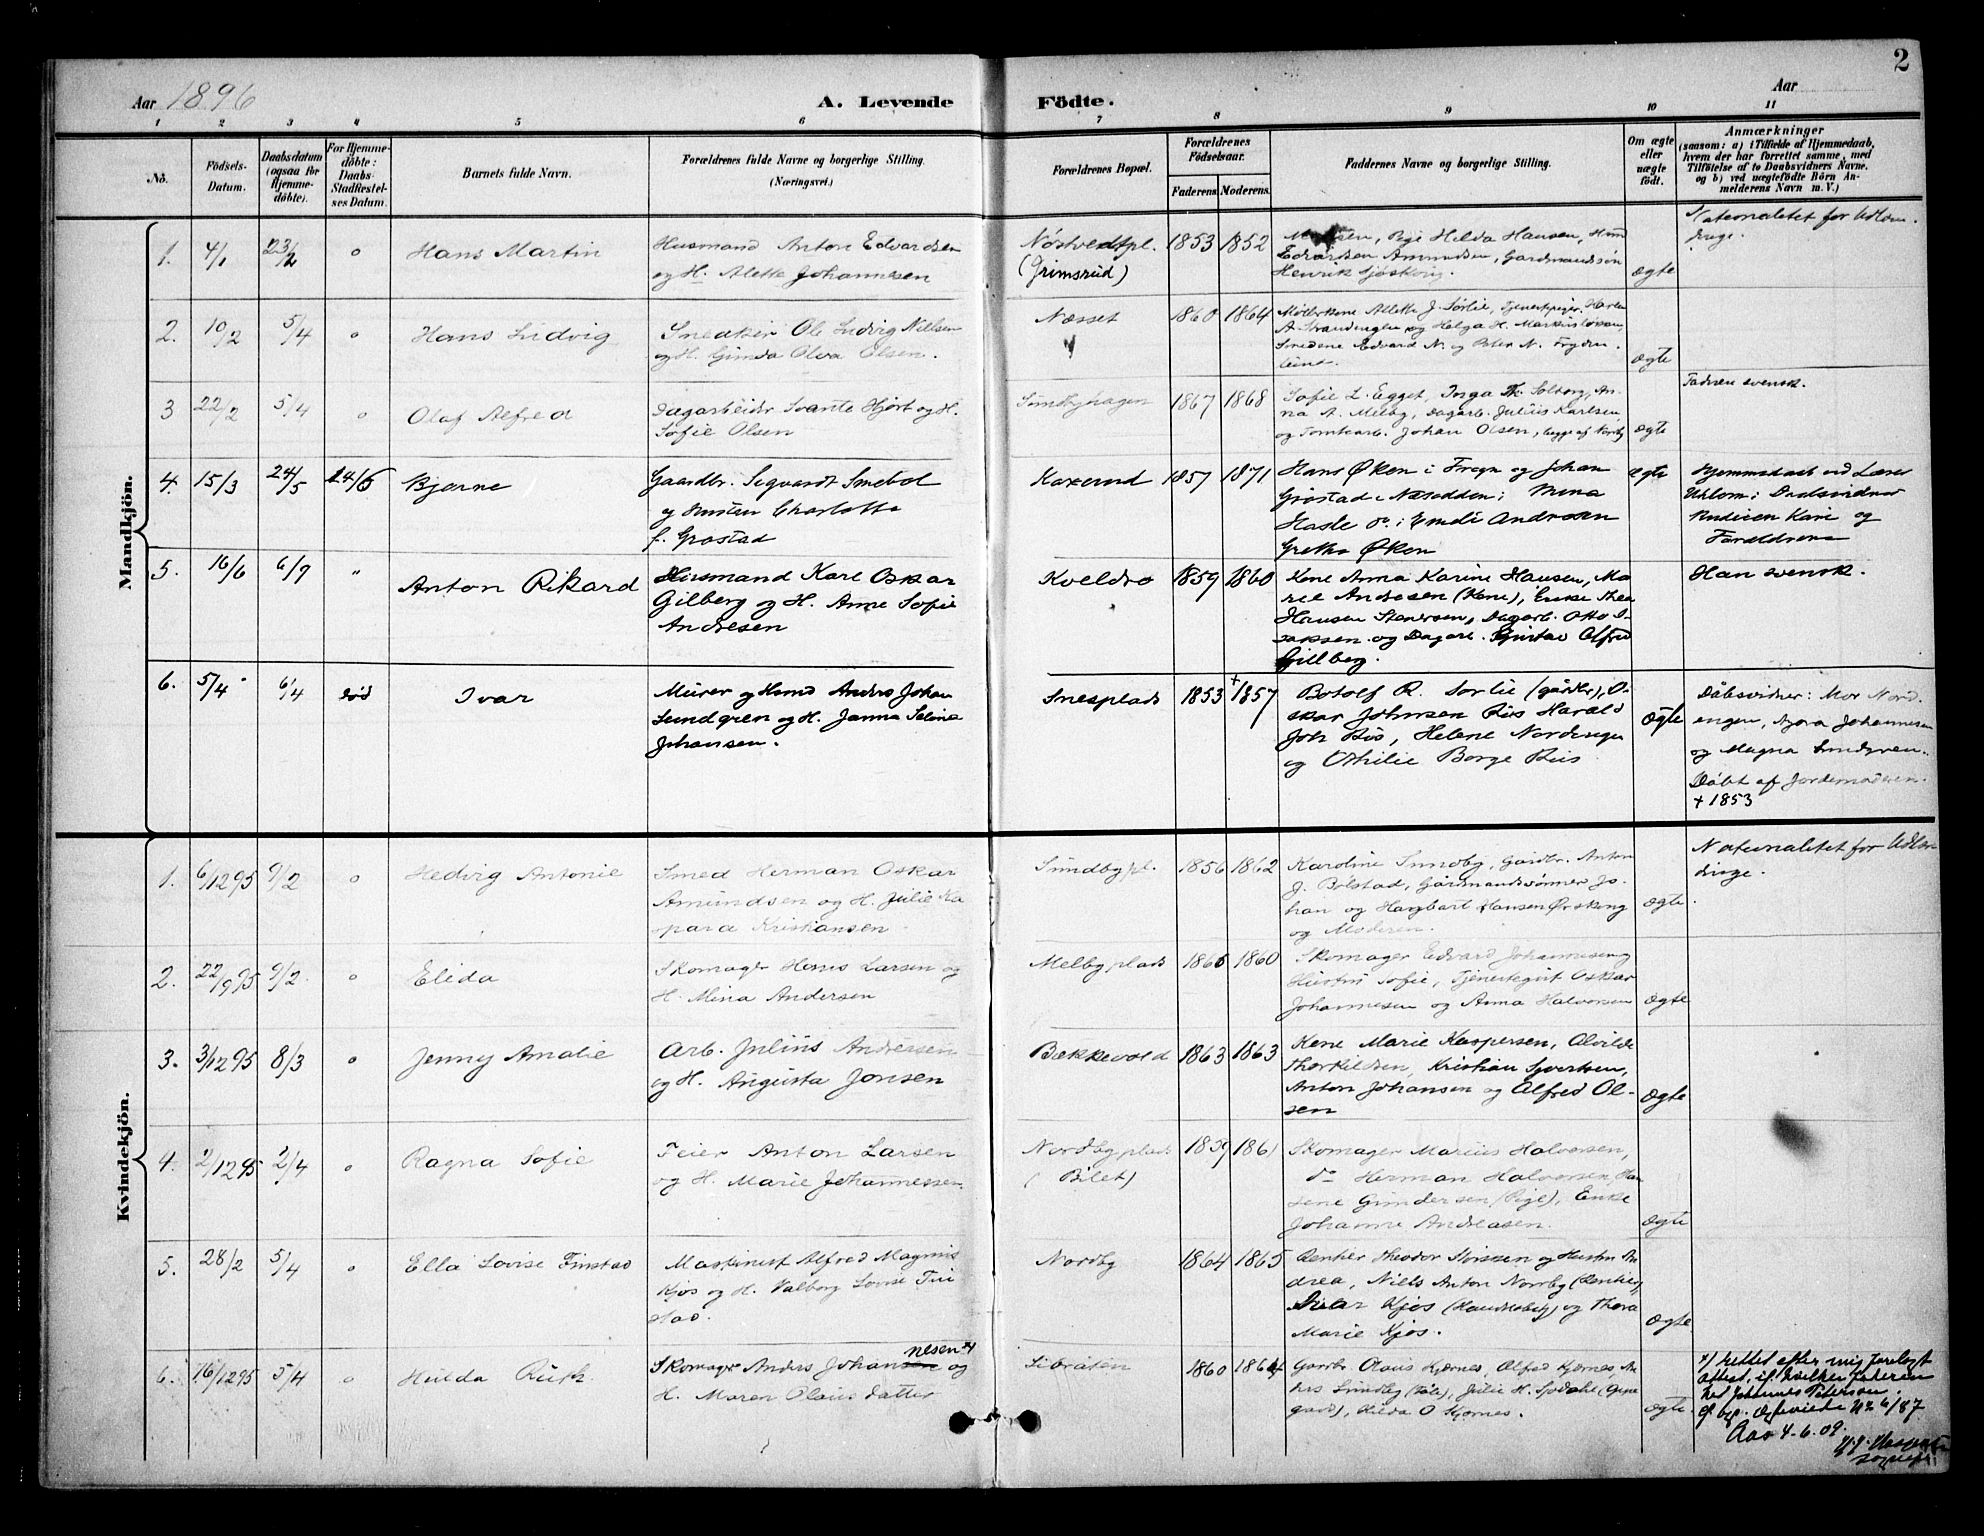 2
Aar 1896
A. Levende
Födte.
Aar
1 2 3 4 5 6 7 8 9 10 11
No.
Födsels-
Datum.
Daabsdatum
(ogsaa for
Hjemme-
döbte).
For Hjemme-
döbte:
Daabs-
Stadfæstel-
ses Datum.
Barnets fulde Navn.
Forældrenes fulde Navne og borgerlige Stilling.
(Næringsvei.)
Forældrenes Bopæl.
Forældrenes
Födselsaar.
Faderens. Moderens.
Faddernes Navne og borgerlige Stilling.
Om ægte
eller
uægte
födt.
Anmærkninger
(saasom: a) i Tilfælde af Hjemmedaab,
hvem der har forrettet samme, med
Tilföielse af to Daabsvidners Navne.
og b) ved uægtefödte Börn An-
melderens Navn m. V.)
Mandkjön.
1. 4/1 23/2 " Hans Martin
Husmand Anton Edvardsen
og H. Alette Johannesen
Nøstvedtpl.
(Grimsrud)
1853 1852
Pige Hilda Hansen,
Edvardsen Amundsen, Gardmandssøn
Henrik Sjøskog.
ægte
Nationalitet for Udlæn-
dinge.
2. 10/2 5/4 " Hans Ludvig
Snedker Ole Ludvig Nilsen
og H. Gunda Olva Olsen.
Næsset
1860 1864
Alette J. Sørlie,
A. Strandengen og Helga H.
Smedene Edvard N. og Peter N. Fryden-
lund.
ægte
3 22/2 5/4 " Olaf Alfred
Dagarbeider Svante Hjort og H.
Sofie Olsen
Sundbyhagen
1867 1868
Sofie L. Egget, Inga Solberg, An-
na A. Melby, Dagarb. Julius Karlsen
og Tomtearb. Johan Olsen, begge af Nordby
ægte
Faderen svensk.
4. 15/3 24/5 24/5 Bjarne
Gaardbr. Sigvardt Smebøl
og Hustru Charlotte
f. Grøstad
Kaxerud
1857 1871
Hans Øken i Frogn og Johan
Grøstad i Næsodden; Mina
Hasle do; Emili Andresen
Grethe Øken
ægte
Hjemmedøbt ved Lærer
Udlom; Daabsvidner
Kari og
Forældrene
5. 16/6 6/9 " Anton Rikard
Husmand Karl Oskar
Gilberg og H. Anne Sofie
Andresen
Kveldro
1859 1860
Kone Anna Karine Hansen, Ma-
rie Andresen (Kone), Enke Thea
Hansen Stenersen, Dagarb. Otto I-
saksen og Dagarb. Gustav Alfred
Gillberg.
Han svensk.
6. 5/4 6/4 død Ivar
Murer og Hsmd Anders Johan
Lundgren og H. Janna Seline
Johansen.
Snesplads
1853 + 1857
Botolf R. Sørlie (gårdbr), O-
skar Johnsen Riis Harald
Joh Riis, Helene Nordengen
og Othilie Borge Riis
ægte
Dåbsvidner: Mor Nord-
engen, Nora Johannesen
og Magna Lundgren.
Døbt af Jordemoderen.
+ 1853
Kvindekjön.
1. 6/12 95 9/2 " Hedvig Antonie
Smed Herman Oskar
Amundsen og H. Julie Ka
spara Kristiansen
Sundbypl.
1856 1862
Karoline Sundby, Gårdbr. Anton
J. Bølstad, Gårdmandssønner Jo-
han og Hagbart Hansen Ørskog
og Moderen.
ægte
Nationalitet for Udlæn-
dinge.
2. 22/9 95 9/2 " Elida
Skomager Hans Larsen og
H. Mina Andersen
Melbyplads
1860
Skomager Edvard Johannesen og
Hustru Sofie, Tjenestegut Oskar
Johannesen og Anna Halvorsen
ægte
3. 3/12 95 8/3 " Jenny Amalie
Arb. Julius Andersen
og H. Augusta Jonsen
Bækkevold
1863 1863
Kone Marie Kaspersen, Alvilde
Thorkildsen, Kristian Syvertsen,
Anton Johansen og Alfred Ol-
sen
ægte
4. 2/12 95 2/4 " Ragna Sofie
Feier Anton Larsen
og H. Marie Johannessen
Nordbyplads
(Bilet)
1859 1861
Skomager Marius Halvorsen,
do Herman Halvorsen, Han-
sene Gundersen (Pige), Enke
Johanne Andreasen.
ægte
5. 28/2 5/4 " Ella Lovise Finstad
Maskinist Alfred Magnus
Kjos og H. Valborg Lovise Fin
stad.
Nordby
1864 1865
Rentier Theodor og Hustru An-
drea, Niels Anton Nordby (Rentier),
Kjos (Handelsbetj) og Thora
Marie Kjos.
ægte
6. 16/12 95 5/4 " Hulda Ruth
nesen x)
Skomager Anders Johansen og
H. Maren Olausdatter
Sibraaten
1860 1864
Gaardbr Olaus Kjærnes, Alfred Kjærnes, An-
ders Sundby, Julie H.
Hilda O Kjærnes.
ægte
x) rettet efter mig forelagt
attest, if. hvilken faderen
hed Johannes Petersen.
Aas 4-6-09.